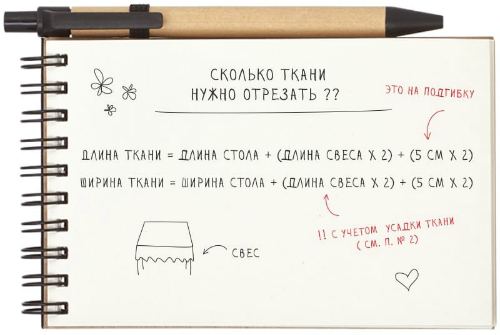 СКОЛЬКО ТКАНИ
НУЖНО ОТРЕЗАТЬ ??
ЭТО НА ПОДГИБКУ
ДЛИНА ТКАНИ = ДЛИНА СТОЛА + (ДЛИНА СВЕСА X 2) + (5 СМ X 2)
ШИРИНА ТКАНИ = ШИРИНА СТОЛА + (ДЛИНА СВЕСА X 2) + (5 СМ X 2)
!! С УЧЕТОМ УСАДКИ ТКАНИ
( СМ. П. № 2)
СВЕС